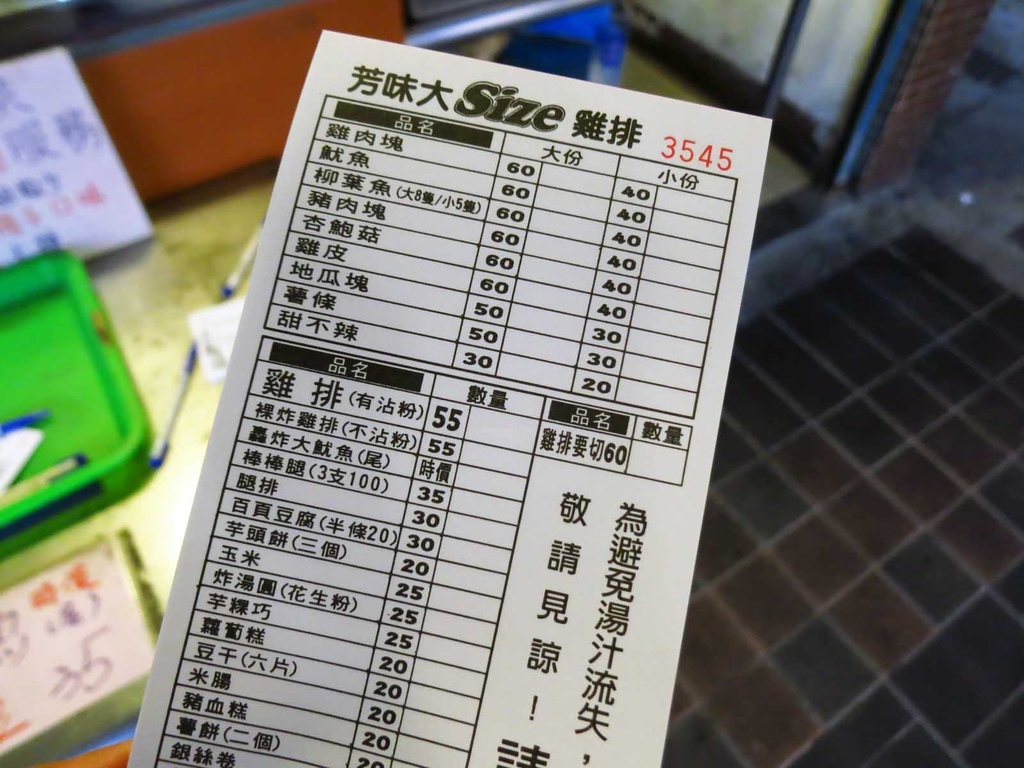 芳味大Size雞排 3545
品名 大份 小份
雞肉塊 60 40
魷魚 60 40
柳葉魚(大8隻/小5隻) 60 40
豬肉塊 60 40
杏鮑菇 60 40
雞皮 60 40
地瓜塊 50 30
薯條 50 30
甜不辣 30 20
品名 數量
雞排(有沾粉) 55
裸炸雞排(不沾粉) 55
轟炸大魷魚(尾) 時價
棒棒腿(3支100) 35
腿排 30
百頁豆腐(半條20) 30
芋頭餅(三個) 20
玉米 25
炸湯圓(花生粉) 25
芋粿巧 25
蘿蔔糕 20
豆干(六片) 20
米腸 20
豬血糕 20
薯餅(二個) 20
銀絲卷
品名 數量
雞排要切60
為避免湯汁流失,
敬請見諒!
35